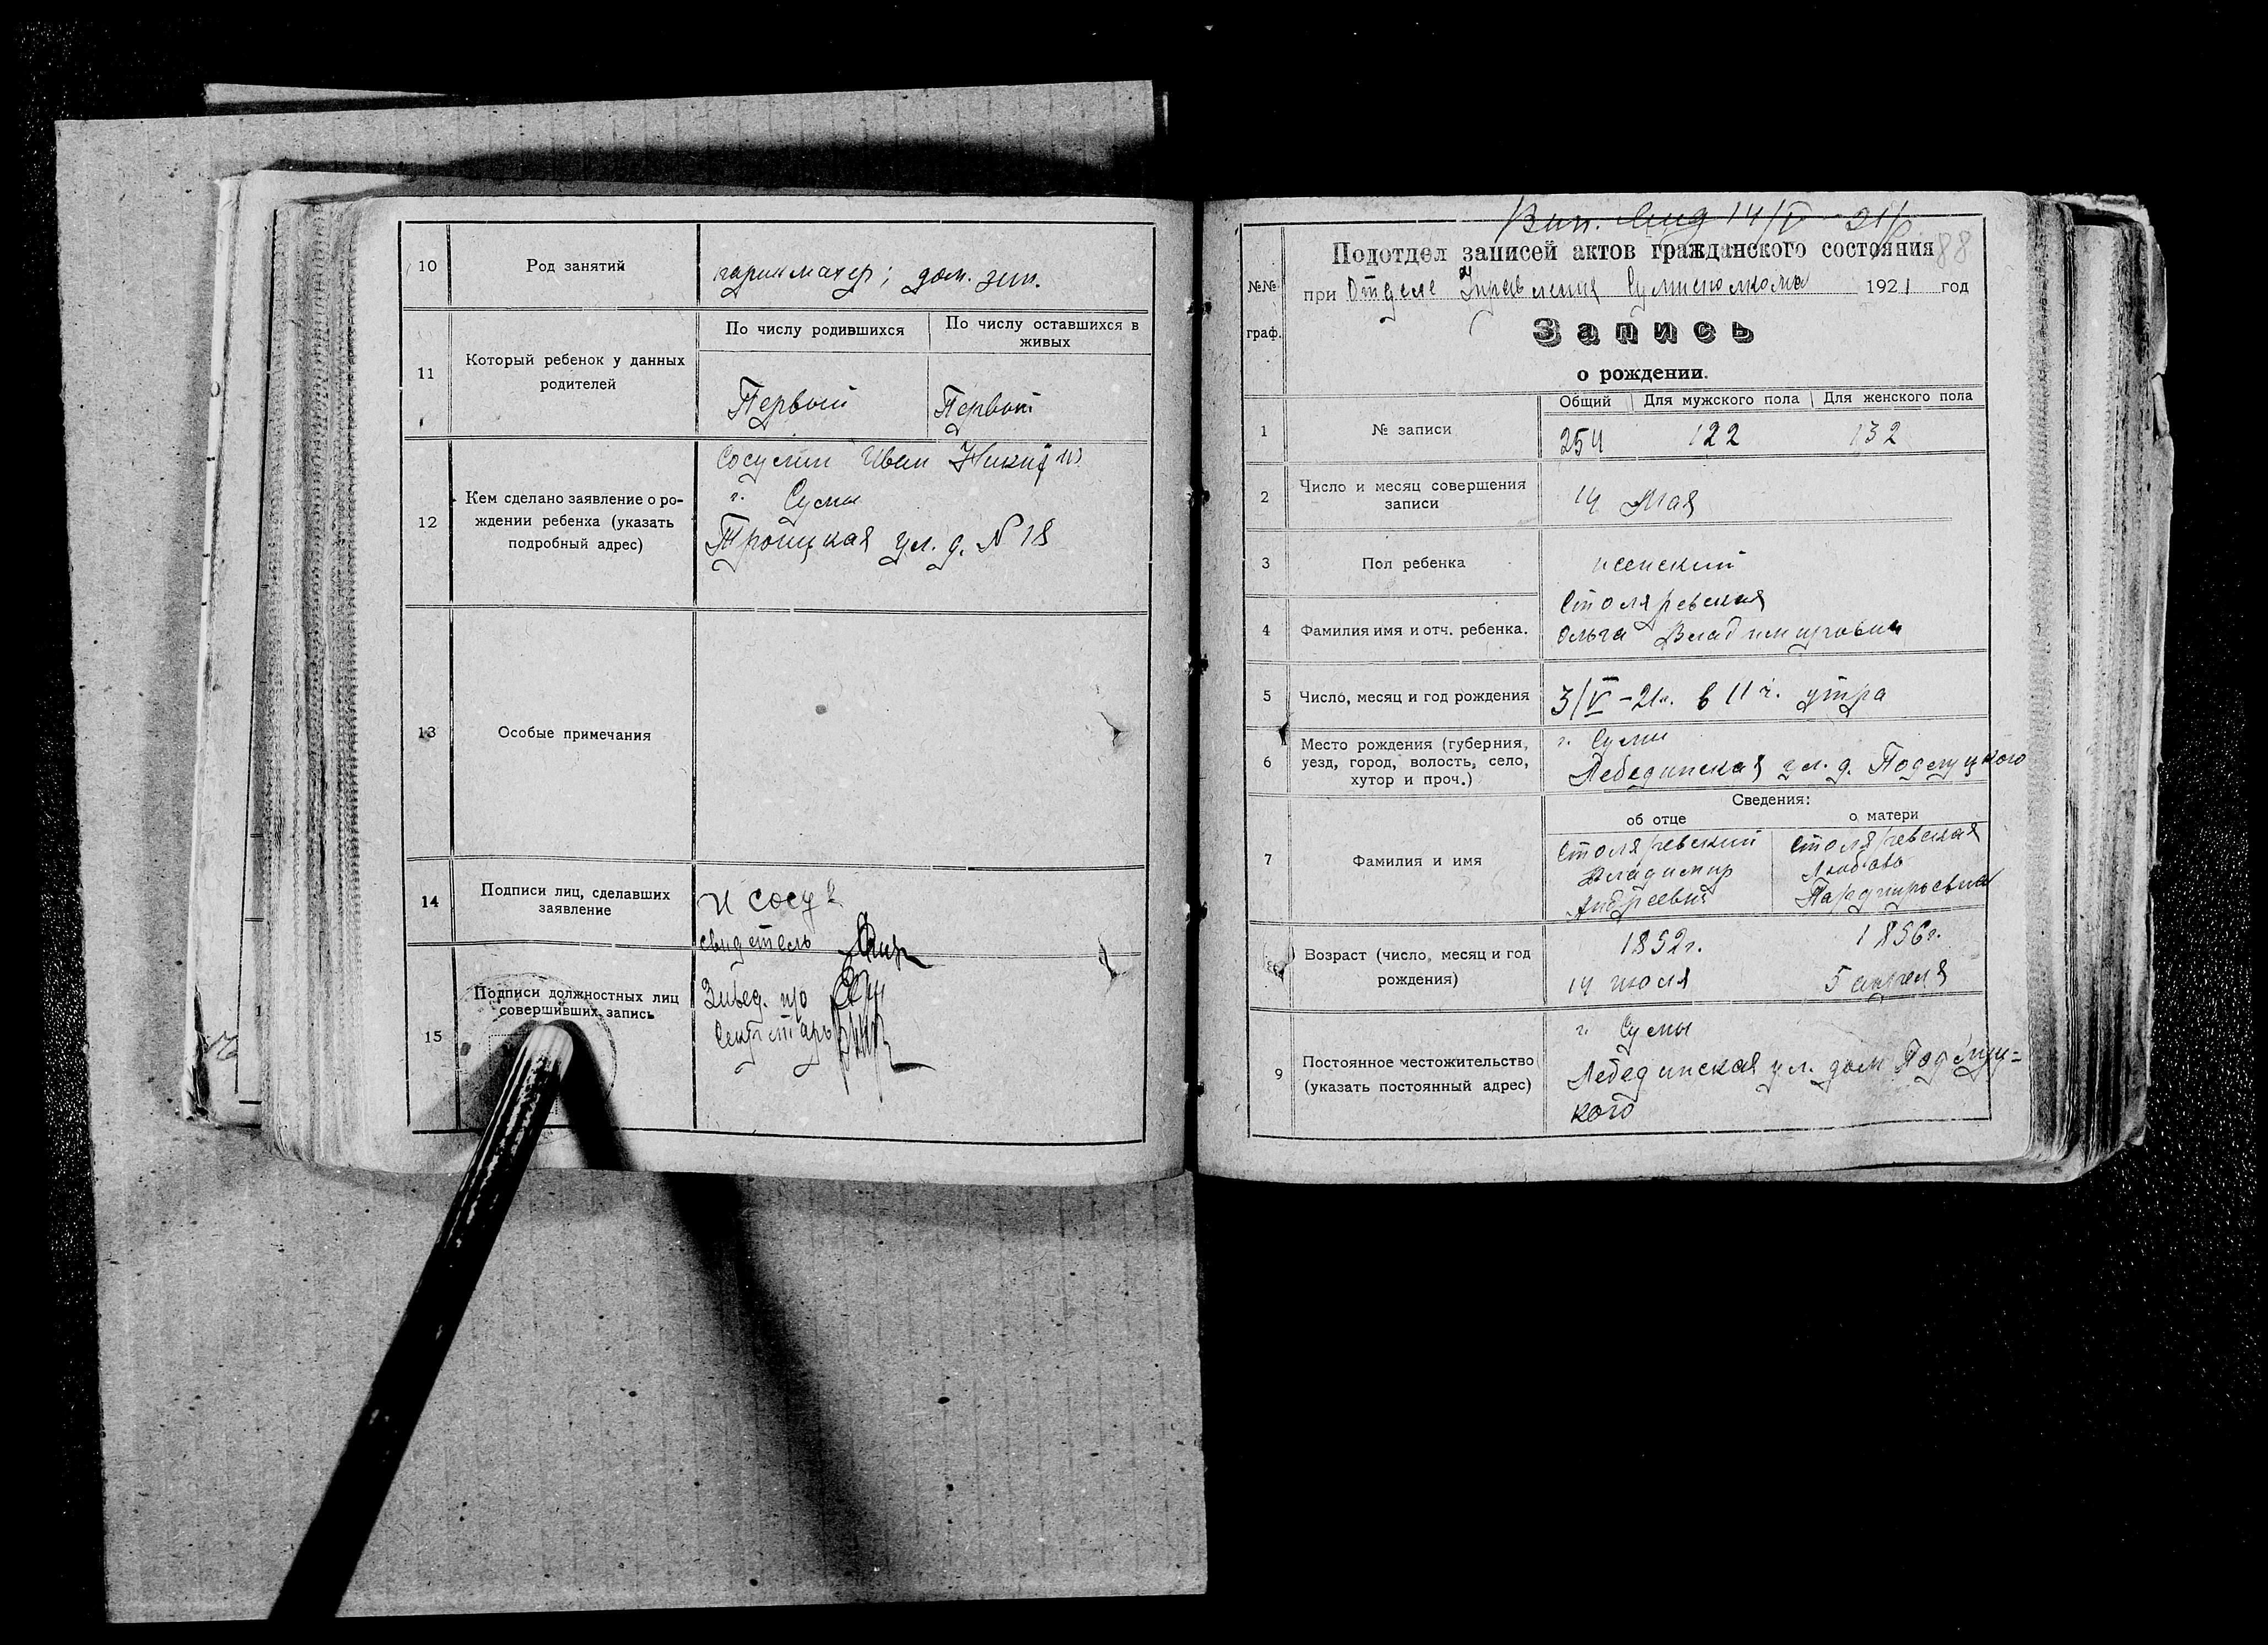 10
Род занятий
парикмахер; дом. зан.
11
Который ребенок у данных
родителей
По числу родившихся
По числу оставшихся в
живых
Первый
Первый
12
Кем сделано заявление о ро-
ждении ребенка (указать
подробный адрес)
Сосулин Иван
г. Сумы
Троицкая ул. д. № 18
13
Особые примечания
14
Подписи лиц, сделавших
заявление
И Сосу
свидетель
15
Подписи должностных лиц
совершивших запись
Завед. п/о
Секретарь
14/V 21
88
Подотдел записей актов гражданского состояния
при Отделе Управления Сумисполкома 1921 год
№№
граф.
Запись
о рождении.
Общий
Для мужского пола
Для женского пола
1
№ записи
254
122
132
2
Число и месяц совершения
записи
14 Мая
3
Пол ребенка
женский
4
Фамилия имя и отч. ребенка.
Столяревская
Ольга Владимировна
5
Число, месяц и год рождения
3/V -21г. в 11 ч. утра
6
Место рождения (губерния,
уезд, город, волость, село,
хутор и проч.)
г. Сумы
Лебединская ул. д. Подлуцкого
Сведения:
об отце
о матери
7
Фамилия и имя
Столяревский
Владимир
Андреевич
Столяревская
Любовь
Порфирьевна
Возраст (число, месяц и год
рождения)
1892г.
14 июля
1896г.
5 апреля
9
Постоянное местожительство
(указать постоянный адрес)
г. Сумы
Лебединская ул. дом Подлуц=
кого